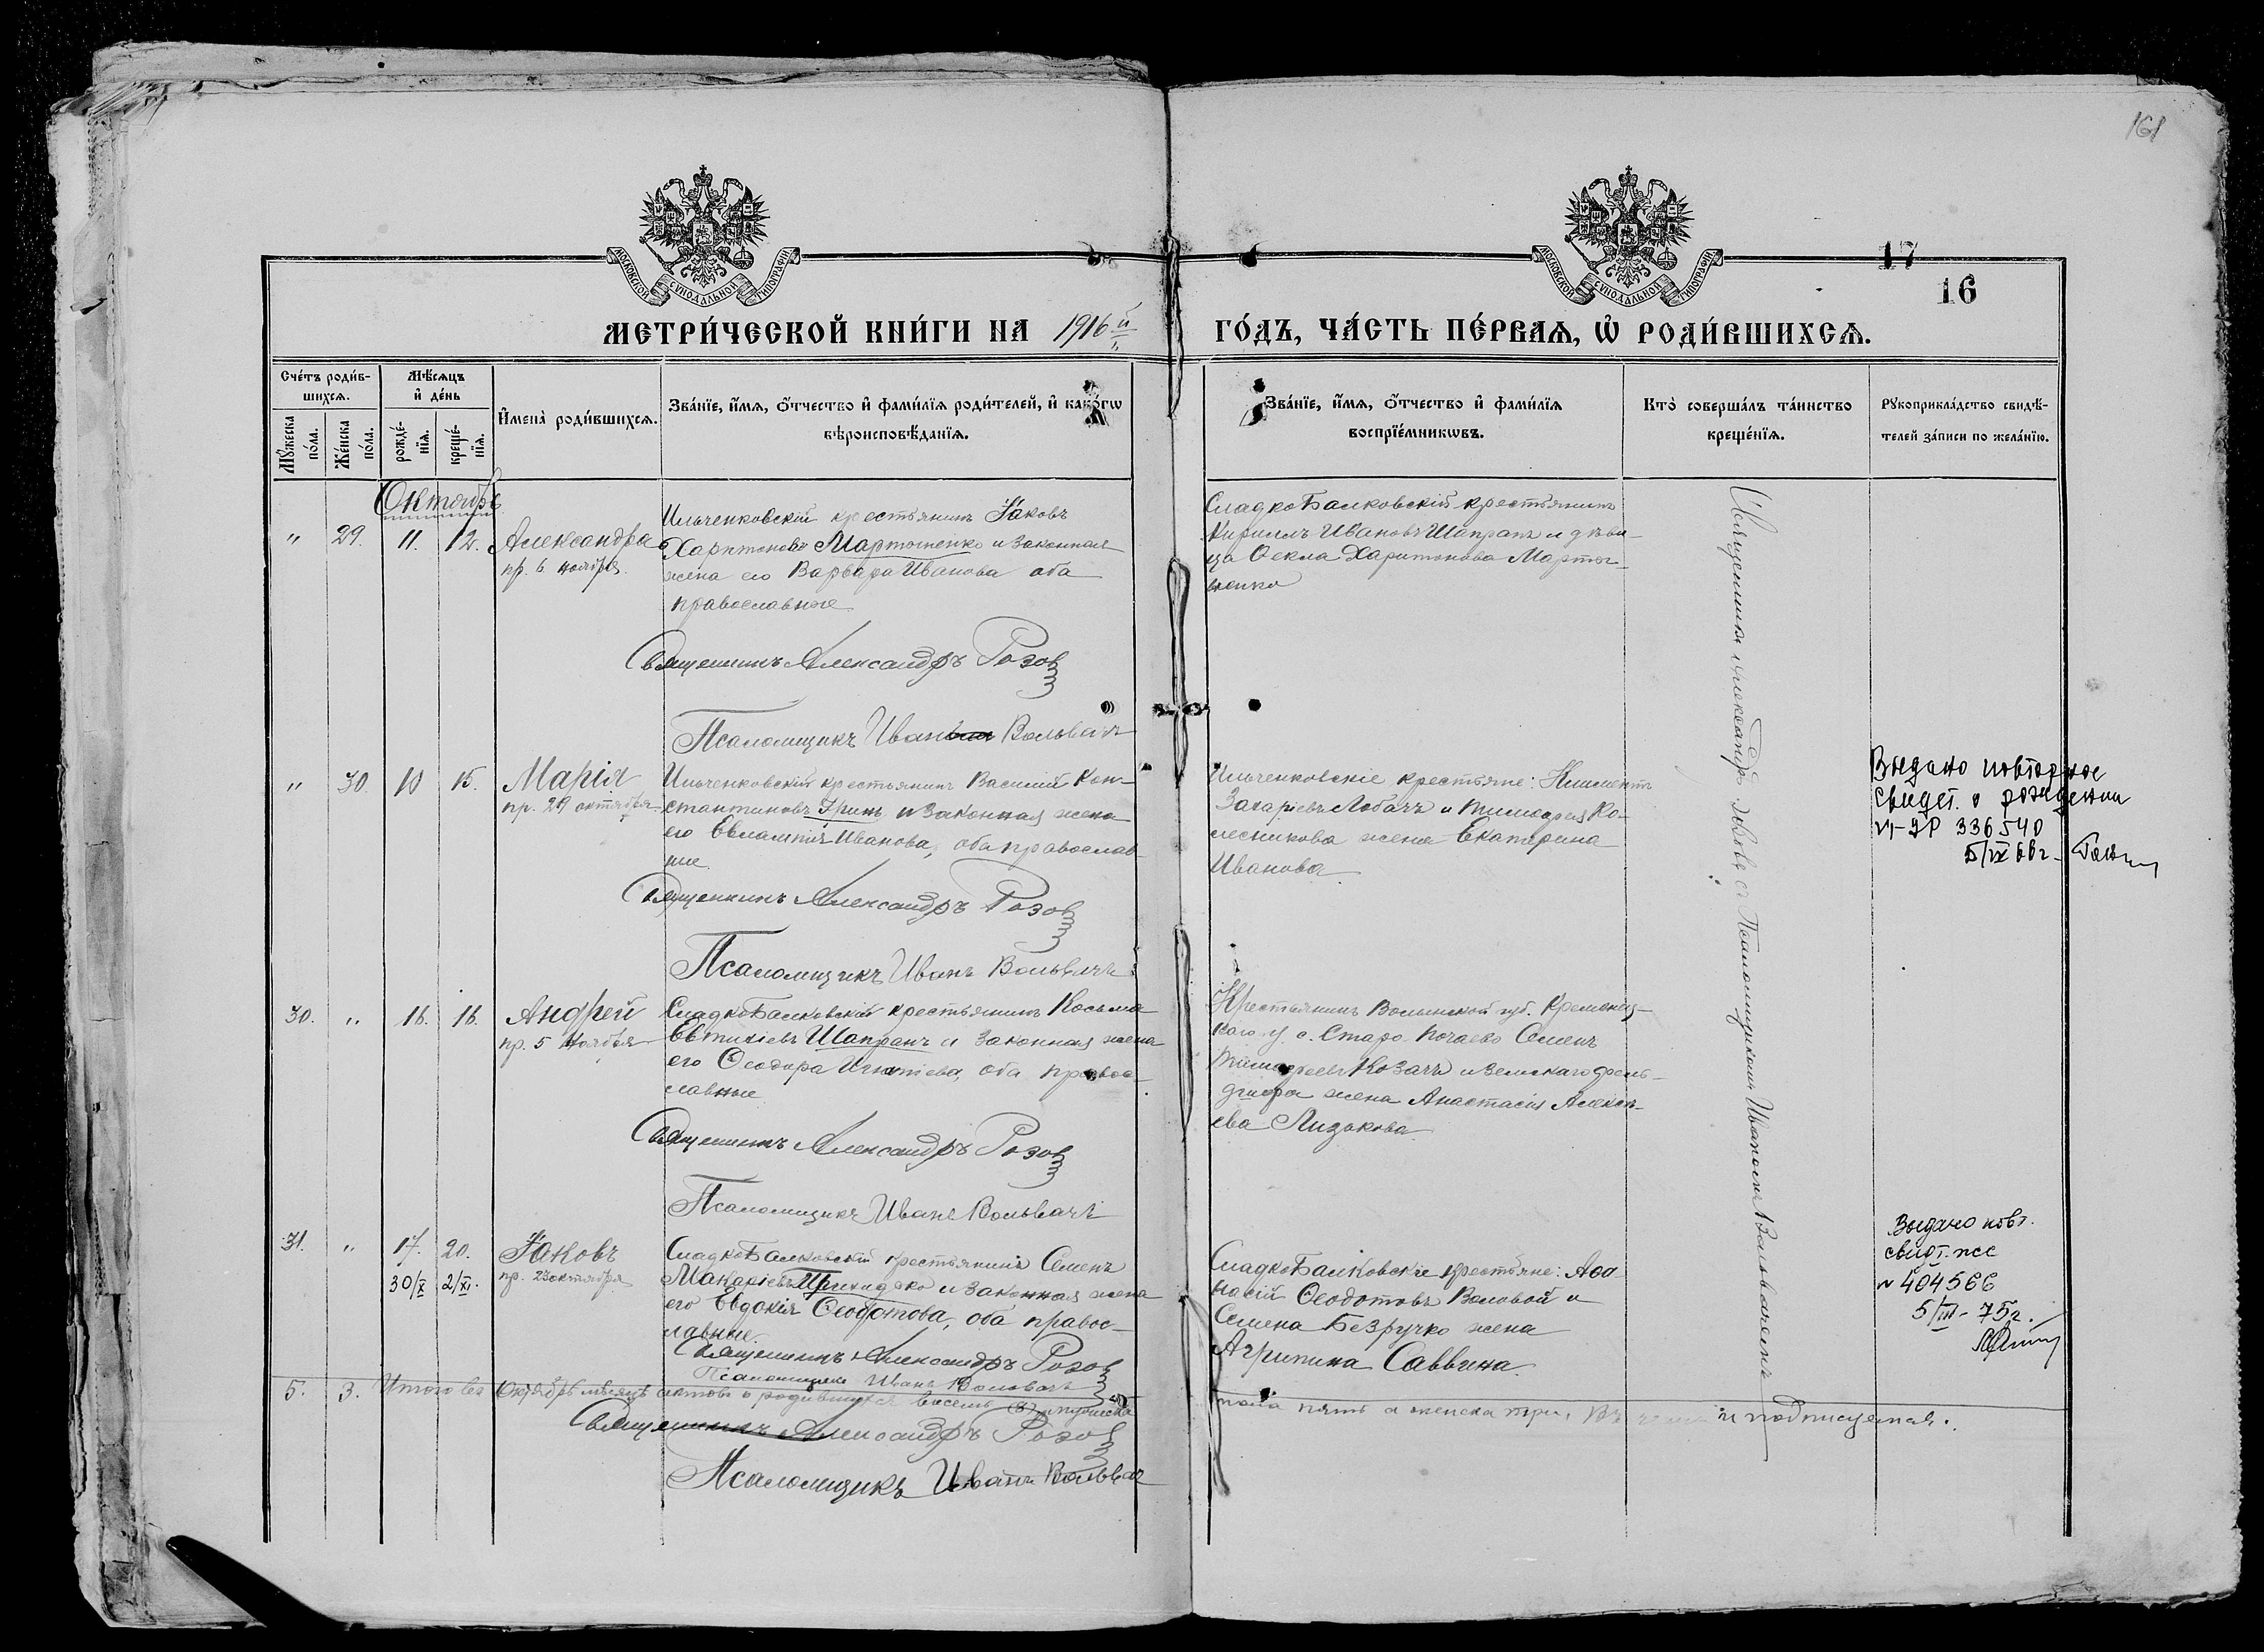 161
МОСКОВСКОЙ СѴНОДАЛЬНОЙ ТИПОГРАФІИ
МОСКОВСКОЙ СѴНОДАЛЬНОЙ ТИПОГРАФІИ
17
16
МЕТРИ́ЧЕСКОЙ КНИ́ГИ НА 1916й
ГО́ДЪ, ЧА́СТЬ ПЕ́РВАѦ, Ѡ҆ РОДИ́ВШИХСѦ.
Сче́тъ роди́в-
шихсѧ.
Мꙋ́жеска по́ла.
Же́нска по́ла.
Мѣ́сѧцъ и҆ де́нь
рожде́-нїѧ.
креще́-нїѧ.
И҆мена̀ роди́вшихсѧ.
Зва́нїе, и҆́мѧ, ѻ҆́тчество и҆ фами́лїѧ роди́телей, и҆ како́гѡ
вѣроисповѣ́данїѧ.
Зва́нїе, и҆́мѧ, ѻ҆́тчество и҆ фами́лїѧ
воспрїе́мникѡвъ.
Кто̀ соверша́лъ та́инство
креще́нїѧ.
Рꙋкоприкла́дство свидѣ́-
телей за́писи по жела́нїю.
Октябрь
" 29. 11. 12. Александра
пр. 6 ноября.
Ильченковскій крестьянинъ Іаковъ
Харитоновъ Мартыненко и законная
жена его Варвара Иванова оба
православные
Священникъ Александръ Розовъ
Псаломщикъ Иванъ Вольвачъ
СладкоБалковскій крестьянинъ
Кириллъ Ивановъ Шапранъ и дѣви-
ца Ѳекла Харитонова Марты-
ненко
" 30. 10 15. Марія
пр. 29 октября
Ильченковскій крестьянинъ Василій Кон-
стантиновъ Гринь и законная жена
его Евлампія Иванова, оба православ-
ные.
Священникъ Александръ Розовъ
Псаломщикъ Иванъ Вольвачъ
Ильченковскіе крестьяне: Климентъ
Захаріевъ Лобачъ и Тимоѳея Ко-
лесникова жена Екатерина
Иванова
Выдано повторное
свидет. о рождении
336540
5/IX 66г.
30. " 16. 16. Андрей
пр. 5 ноября
СладкоБалковскій крестьянинъ Косьма
Евтихіевъ Шапранъ и законная жена
его Ѳеодора Игнатіева, оба правос-
лавные
Священникъ Александръ Розовъ
Псаломщикъ Иванъ Вольвачъ
Крестьянинъ Волынской губ. Кременец-
каго у. с. Старо-Почаево Семенъ
Тимоѳеевъ Козачъ и земскаго фель-
дшера жена Анастасія Алексѣ-
ева Лизакова
31. " 17. 20. Іаковъ
30/X 2/XI. пр. 23 октября
СладкоБалковскій крестьянинъ Семенъ
Макаріевъ Прихидько и законная жена
его Евдокія Ѳеодотова, оба правос-
лавные.
Священникъ Александръ Розовъ
Псаломщикъ Иванъ Вольвачъ
СладкоБалковскіе крестьяне: Аѳа-
насій Ѳеодотовъ Воловой и
Семена Безручко жена
Агрипина Саввина
Выдано повт.
свид.
№ 404566
5/III-75г.
Священникъ Александръ Розовъ съ Псаломщикомъ Иваномъ Вольвачемъ
5. 3. Итого въ Октябрѣ мѣсяцѣ актовъ о родившихся восемь (8) мужеска
пола пять а женска три, въ чемъ и подписуемся.
Священникъ Александръ Розовъ
Псаломщикъ Иванъ Вольвачъ